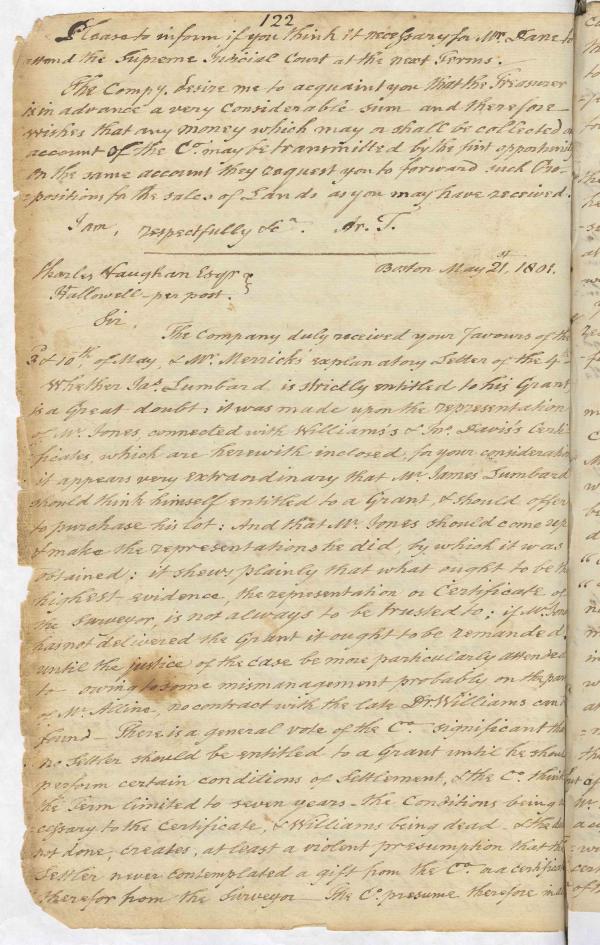 122
Please to inform if you think it necessary for Mr. Lane to
attend the Supreme Judicial Court at the next Terms.
The Compy. desire me to acquaint you that the Treasurer
is in advance a very Considerable sum and therefore
wishes that any money which may or shall be collected on
account of the Co. may be transmitted by the first opportunity
On the same account they request you to forward such Pro-
-positions for the sales of Lands as you may have received.
I am, respectfully &ca. Ar. T.
Charles Vaughan Esqr }
Boston May 21st. 1801.
Hallowell - per post.
Sir.
The Company duly received your favours of the
3d & 10th of May, & Mr. Merrick's explanatory Letter of the 4th
Whether Jas. Lumbard is strictly entitled to his Grant
is a Great doubt: it was made upon the representation
of Mr. Jones, connected with Williams's & Jno. Davis's Certi-
ficates, which are herewith inclosed, for your consideration
it appears very extraordinary that Mr. James Lumbard
should think himself entitled to a Grant, & should offer
to purchase his lot: And that Mr. Jones should come up
& make the representations he did, by which it was
obtained; it shews plainly that what ought to be the
highest evidence, the representation or Certificate of
the Surveyor, is not always to be trusted to; if Mr. Jones
has not delivered the Grant it ought to be remanded,
until the justice of the Case be more particularly attended
to - owing to some mismanagement probably on the part
of Mr. Alline, no contract with the late Dr. Williams can be
found - There is a general vote of the Co. significant that
no Settler should be entitled to a Grant until he should
perform certain conditions of Settlement, & the Co. think
the Term limited to seven years - the Conditions being ne
cessary to the Certificate, & Williams being dead & the
not done, creates, at least a violent presumption that the
Settler never contemplated a gift from the Co. or a certificate
therefor from the Surveyor - The Co. presume therefore in